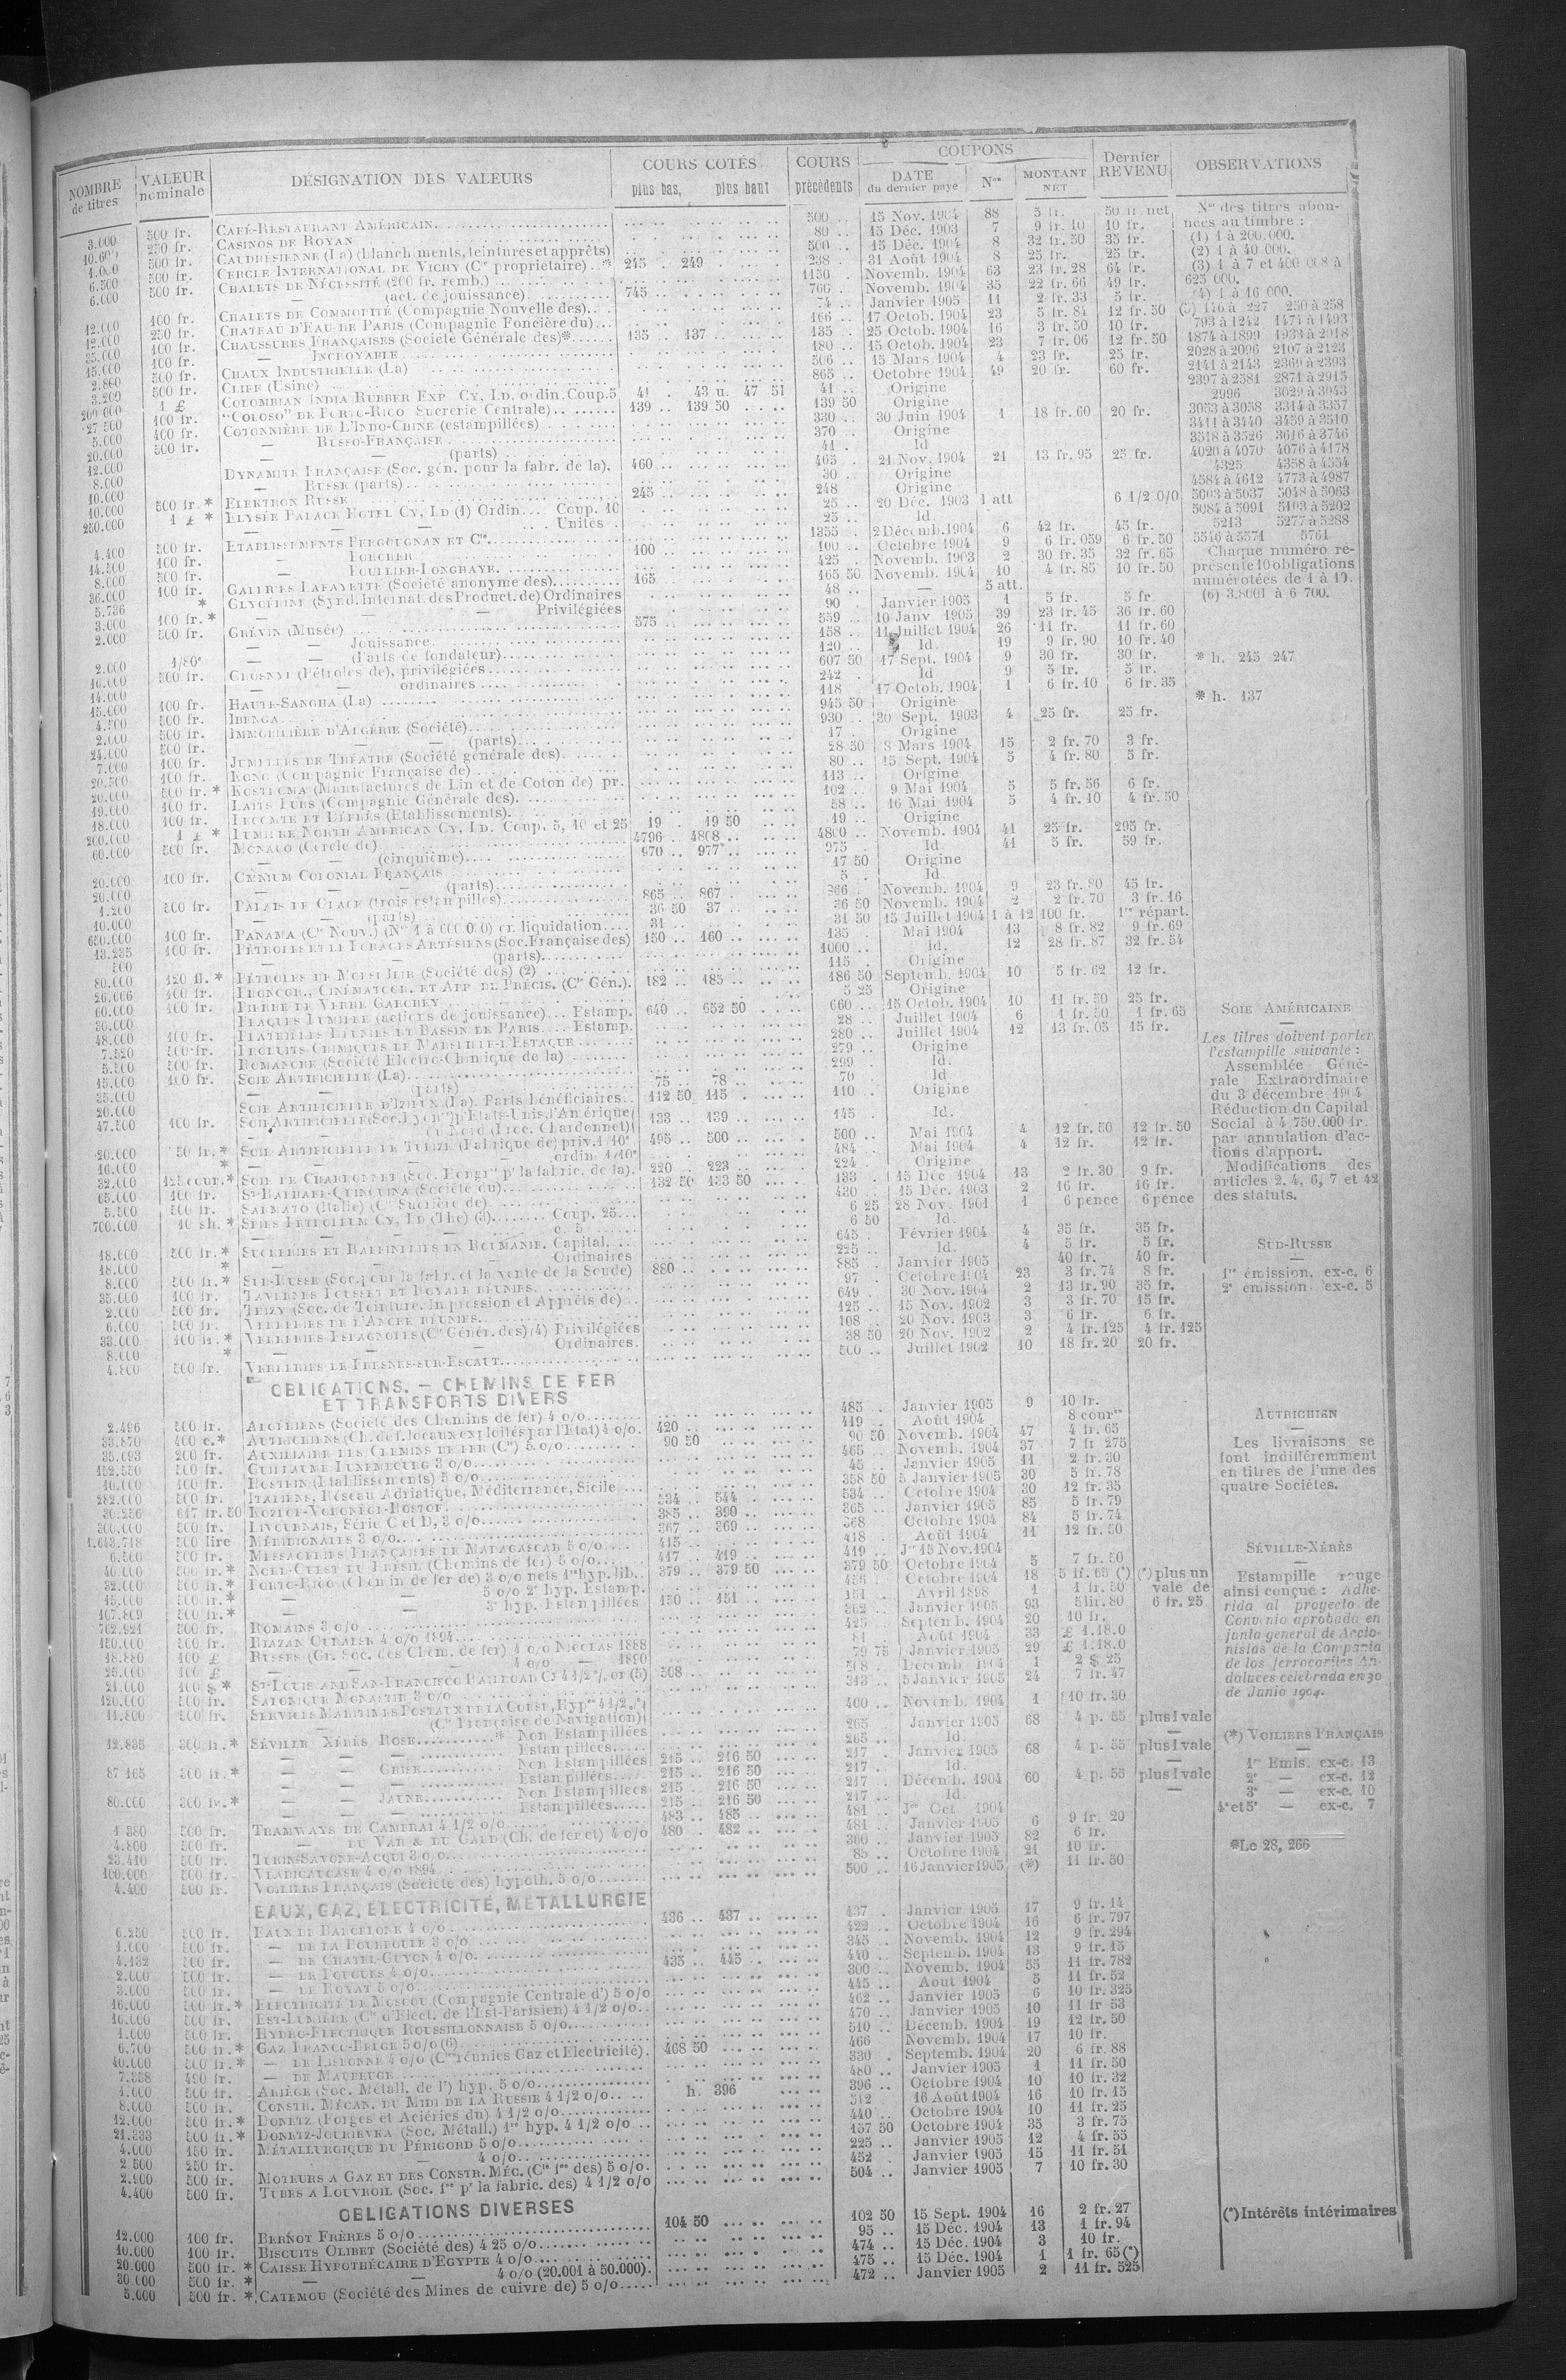 NOMBRE de titres | VALEUR nominale | DÉSIGNATION DES VALEURS | COURS COTÉS plus bas, plus haut | COURS précédents | COUPONS DATE du dernier payé | Nos | MONTANT NET | Dernier REVENU | OBSERVATIONS
3.000 500 fr. CAFÉ-RESTAURANT AMÉRICAIN 500 .. 15 Nov. 1904 88 5 fr. 50 fr. net
10.600 250 fr. CASINOS DE ROYAN 80 .. 15 Déc. 1903 7 9 fr. 10 10 fr.
500 fr. CAUDRÉSIENNE (La) (blanchiments, teintures et apprêts) 500 .. 15 Déc. 1904 8 32 fr. 50 35 fr.
6.500 500 fr. CERCLE INTERNATIONAL DE VICHY (Cie propriétaire) * 245 . 249 238 . 31 Août 1904 8 25 fr. 25 fr.
6.000 500 fr. CHALETS DE NÉCESSITÉ (200 fr. remb.) 1150 . Novemb. 1904 63 23 fr. 28 64 fr.
— (act. de jouissance) 745 .. 766 . Novemb. 1904 35 22 fr. 66 49 fr.
12.000 100 fr. CHALETS DE COMMODITÉ (Compagnie Nouvelle des) 74 .. Janvier 1905 11 2 fr. 33 5 fr.
12.000 250 fr. CHATEAU D'EAU DE PARIS (Compagnie Foncière du) 166 .. 17 Octob. 1904 23 5 fr. 84 12 fr. 50
35.000 100 fr. CHAUSSURES FRANÇAISES (Société Générale des)* 135 .. 137 135 .. 25 Octob. 1904 16 3 fr. 50 10 fr.
15.000 100 fr. — INCROYABLE 180 .. 15 Octob. 1904 23 7 fr. 06 12 fr. 50
500 fr. CHAUX INDUSTRIELLE (La) 506 .. 15 Mars 1904 4 23 fr. 25 fr.
3.200 500 fr. CLIFF (Usine) 865 .. Octobre 1904 49 20 fr. 60 fr.
200.000 1 £ COLOMBIAN INDIA RUBBER EXP. CY, LD. ordin. Coup. 5 41 . 43 u. 47 51 41 .. Origine
27.500 100 fr. "COLOSO" DE PORTO-RICO Sucrerie Centrale) 139 .. 139 50 139 50 Origine
5.000 400 fr. COTONNIÈRE DE L'INDO-CHINE (estampillées) 330 .. 30 Juin 1904 1 18 fr. 60 20 fr.
20.000 500 fr. — RUSSO-FRANÇAISE 370 .. Origine
12.000 — — (parts) 41 . Id.
8.000 DYNAMITE FRANÇAISE (Soc. gén. pour la fabr. de la). 460 465 . 21 Nov. 1904 21 13 fr. 95 25 fr.
10.000 — RUSSE (parts) 30 .. Origine
10.000 500 fr. * ELEKTRON RUSSE 245 248 Origine
250.000 1 £ * ELYSÉE PALACE HOTEL CY, LD (1) Ordin. Coup. 10 25 .. 20 Déc. 1903 1 att 6 1/2 0/0
— — — Unités 25 .. Id.
4.400 500 fr. ETABLISSEMENTS BERGOUGNAN ET Cie 1355 .. 2 Décemb. 1904 6 42 fr. 45 fr.
14.500 100 fr. — 100 100 .. Octobre 1904 9 6 fr. 059 6 fr. 50
8.000 500 fr. — 425 . Novemb. 1903 2 30 fr. 35 32 fr. 65
36.000 100 fr. GALERIES LAFAYETTE (Société anonyme des) 165 165 50 Novemb. 1904 10 4 fr. 85 10 fr. 50
5.736 * GLYCÉRINE (Synd. Internat. des Product. de) Ordinaires 48 .. — 5 att.
3.000 100 fr. * — — Privilégiées 90 . Janvier 1905 1 5 fr. 5 fr.
2.000 500 fr. GRÉVIN (Musée) 575 559 .. 10 Janv. 1905 39 23 fr. 45 36 fr. 60
— — Jouissance 158 .. 11 Juillet 1904 26 11 fr. 11 fr. 60
2.000 1/80e — — (Parts de fondateur) 120 .. Id. 19 9 fr. 90 10 fr. 40
500 fr. GROSNYI (Pétroles de), privilégiées 607 50 17 Sept. 1904 9 30 fr. 30 fr.
14.000 — — ordinaires 242 . Id 9 5 fr. 5 fr.
15.000 100 fr. HAUTE-SANGHA (La) 118 17 Octob. 1904 1 6 fr. 10 6 fr. 35
500 fr. IBENGA 945 50 Origine
2.000 500 fr. IMMOBILIÈRE D'ALGÉRIE (Société) 930 .. 30 Sept. 1903 4 25 fr. 25 fr.
24.000 500 fr. — — (parts) 17 . Origine
7.000 100 fr. JUMELLES DE THÉATRE (Société générale des) 28 50 8 Mars 1904 15 2 fr. 70 3 fr.
20.500 100 fr. KONG (Compagnie Française de) 80 .. 15 Sept. 1904 5 4 fr. 80 5 fr.
20.000 500 fr. * KOSTROMA (Manufactures de Lin et de Coton de) pr. 113 .. Origine
19.000 100 fr. LAITS PURS (Compagnie Générale des) 102 .. 9 Mai 1904 5 5 fr. 56 6 fr.
18.000 100 fr. LECOMTE ET DEPRÈS (Etablissements) 58 .. 16 Mai 1904 5 4 fr. 10 4 fr. 50
200.000 1 £ * LUMIÈRE NORTH AMERICAN CY, LD. Coup. 5, 10 et 25 19 . 19 50 19 .. Origine
60.000 500 fr. MONACO (Cercle de) 4796 .. 4808 .. 4800 .. Novemb. 1904 41 25 fr. 295 fr.
— — (cinquième) 970 .. 977 975 . Id 41 5 fr. 59 fr.
20.000 100 fr. OMNIUM COLONIAL FRANÇAIS 17 50 Origine
20.000 — — (parts) 5 . Id.
1.200 500 fr. PALAIS DE GLACE (trois estampilles) 865 .. 867 866 .. Novemb. 1904 9 23 fr. 80 45 fr.
10.000 — — (parts) 36 50 37 .. 36 50 Novemb. 1904 2 2 fr. 70 3 fr. 16
650.000 100 fr. PANAMA (Cie Nouv.) (Nos 1 à 600.000) en liquidation 31 .. 31 50 15 Juillet 1904 1 à 12 100 fr. 1re répart.
13.235 100 fr. PÉTROLES ET LE FORAGES ARTÉSIENS (Soc. Française des) 150 .. 160 .. 135 . Mai 1904 13 8 fr. 82 9 fr. 69
500 — — (parts) 1000 .. Id. 12 28 fr. 87 32 fr. 54
80.000 120 fl. * PÉTROLES DE MOESI ILIR (Société des) (2) 115 . Origine
26.666 100 fr. PHONOGR., CINÉMATOGR. ET APP. DE PRÉCIS. (Cie Gén.). 182 .. 185 .. 186 50 Septemb. 1904 10 5 fr. 62 12 fr.
60.000 100 fr. PIERRE DE VERRE GARCHEY 5 25 Origine
30.000 PLAQUES LUMIÈRE (actions de jouissance) Estamp. 640 .. 652 50 660 .. 15 Octob. 1904 10 11 fr. 50 25 fr.
48.000 100 fr. PLATRIÈRES RÉUNIES ET BASSIN DE PARIS Estamp. 28 .. Juillet 1904 6 1 fr. 50 1 fr. 65
7.520 500 fr. PRODUITS CHIMIQUES DE MARSEILLE-L'ESTAQUE 280 .. Juillet 1904 12 13 fr. 05 15 fr.
5.500 500 fr. ROMANCHE (Société Electro-Chimique de la) 279 .. Origine
15.000 100 fr. SOIE ARTIFICIELLE (La) 299 . Id.
35.000 — — (parts) 75 .. 78 .. 70 . Id
20.000 SOIE ARTIFICIELLE D'IZIEUX (La). Parts bénéficiaires 112 50 115 . 110 . Origine
47.500 100 fr. SOIE ARTIFICIELLE (Soc. Lyonnse) pr Etats-Unis, l'Amérique du Nord (Proc. Chardonnet) 133 .. 139 .. 145 . Id.
20.000 50 fr. * SOIE ARTIFICIELLE DE TUBIZE (Fabrique de) priv. 1/10e 495 .. 500 .. 500 .. Mai 1904 4 12 fr. 50 12 fr. 50
16.000 * — — ordin. 1/10e 484 .. Mai 1904 4 12 fr. 12 fr.
32.000 125 cour. * SOIE DE CHARDONNET (Soc. Hongr. pr la fabric. de la). 220 .. 223 .. 224 . Origine
65.000 100 fr. ST-RAPHAEL-QUINQUINA (Société du) 132 50 133 50 133 . 15 Déc. 1904 13 2 fr. 30 9 fr.
5.500 500 fr. SALMATO (Italie) (Cie Sucrière de) 430 .. 15 Déc. 1903 2 16 fr. 16 fr.
700.000 10 sh. * SPIES PETROLEUM CY, LD (The) (3) Coup. 25 6 25 28 Nov. 1901 1 6 pence 6 pence
— — — c. 5 6 50 Id.
18.000 500 fr. * SUCRERIES ET RAFFINERIES EN ROUMANIE. Capital 645 . Février 1904 4 35 fr. 35 fr.
18.000 * — — Ordinaires 225 .. Id. 4 5 fr. 5 fr.
8.000 500 fr. * SUD-RUSSE (Soc. pour la fabr. et la vente de la Soude) 880 .. 885 . Janvier 1905 40 fr. 40 fr.
35.000 100 fr. TAVERNES POUSSET ET ROYALE RÉUNIES 97 . Octobre 1904 23 3 fr. 74 8 fr.
2.000 500 fr. THIZY (Soc. de Teinture, Impression et Apprêts de) 649 . 30 Nov. 1904 2 13 fr. 90 35 fr.
6.000 500 fr. VERRERIES DE L'ANCRE RÉUNIES 125 .. 15 Nov. 1902 3 3 fr. 70 15 fr.
33.000 100 fr. * VERRERIES ESPAGNOLES (Cie Génér. des) (4) Privilégiées 108 .. 20 Nov. 1903 3 6 fr. 6 fr.
8.000 * — — Ordinaires. 38 50 20 Nov. 1902 2 4 fr. 125 4 fr. 125
4.800 500 fr. VERRERIES DE FRESNES-SUR-ESCAUT 500 .. Juillet 1902 10 18 fr. 20 20 fr.
OBLIGATIONS. — CHEMINS DE FER
ET TRANSPORTS DIVERS
2.496 500 fr. ALGÉRIENS (Société des Chemins de fer) 4 o/o 485 .. Janvier 1905 9 10 fr.
33.870 400 c. * AUTRICHIENS (Ch. de f. locaux exploités par l'Etat) 4 o/o. 420 .. 419 .. Août 1904 8 cour.
35.093 200 fr. AUXILIAIRE DES CHEMINS DE FER (Cie) 5 o/o 90 50 90 50 Novemb. 1904 47 4 fr. 65
152.550 500 fr. GUILLAUME LUXEMBOURG 3 o/o 465 .. Novemb. 1904 37 7 fr 275
10.000 100 fr. HOSTEIN (Etablissements) 5 o/o 45 .. Janvier 1905 11 2 fr. 30
282.000 500 fr. ITALIENS, Réseau Adriatique, Méditerranée, Sicile 358 50 5 Janvier 1905 30 5 fr. 78
30.256 617 fr. 50 KOZLOF-VORONÈGE-ROSTOF 534 .. 544 .. 534 .. Octobre 1904 30 12 fr. 35
300.000 500 fr. LIVOURNAIS, Série C et D, 3 o/o 385 .. 390 .. 365 .. Janvier 1905 85 5 fr. 79
1.643.748 500 lire MÉRIDIONALES 3 o/o 367 .. 369 .. 368 Octobre 1904 84 5 fr. 74
6.500 500 fr. MESSAGERIES FRANÇAISES DE MADAGASCAR 5 o/o 415 .. 418 . Août 1904 11 12 fr. 50
40.000 500 fr. * NORD-OUEST DU BRÉSIL (Chemins de fer) 5 o/o 417 .. 419 .. 419 .. Jce 15 Nov. 1904
32.000 500 fr. * PORTO-RICO (Chemin de fer de) 3 o/o nets 1re hyp. lib. 379 .. 379 50 379 50 Octobre 1904 5 7 fr. 50
15.000 500 fr. * — — 5 o/o 2e hyp. Estamp. Octobre 1904 18 5 fr. 65 (*) (*) plus un
107.809 500 fr. * — — 3e hyp. Estampillées 150 .. 151 .. 151 .. Avril 1898 1 1 fr. 50 vale de
762.921 500 fr. ROMAINS 3 o/o 362 .. Janvier 1905 93 5 lir. 80 6 fr. 25
150.000 500 fr. RIAZAN OURALSK 4 o/o 1894 425 .. Septemb. 1904 20 10 fr.
18.880 100 £ RUSSES (Gr. Soc. des Chem. de fer) 4 o/o NICOLAS 1888 81 Août 1904 33 £ 1.18.0
25.000 100 £ — — 4 o/o — 1890 79 75 Janvier 1905 29 £ 1.18.0
21.000 100 $ * ST-LOUIS AND SAN-FRANCISCO RAILROAD CY 4 1/2 % or (5) 508 .. 508 .. Décemb. 1904 1 2 $ 25
120.000 500 fr. SALONIQUE MONASTIR 3 o/o 313 .. 5 Janvier 1905 24 7 fr. 47
11.800 500 fr. SERVICES MARITIMES POSTAUX DE LA CORSE, Hyp. 4 1/2 % (Cie Française de Navigation) 400 .. Novemb. 1904 1 10 fr. 30
12.835 300 fr. * SÉVILLE XÉRÈS ROSE * Non Estampillées 265 Janvier 1905 68 4 p. 55 plus 1 vale
— — — Estampillées 265 .. Id. —
87 165 300 fr. * — — GRISE Non Estampillées 215 .. 216 50 217 . Janvier 1905 68 4 p. 55 plus 1 vale
— — — Estampillées 215 .. 216 50 217 . Id. —
80.000 300 fr. * — — JAUNE Non Estampillées 215 .. 216 50 217 .. Décemb. 1904 60 4 p. 55 plus 1 vale
— — — Estampillées 215 .. 216 50 217 .. Id. —
1 380 500 fr. TRAMWAYS DE CAMBRAI 4 1/2 o/o 483 .. 485 .. 481 .. Jce Oct. 1904
4.800 500 fr. — DU VAR & DU GARD (Ch. de fer et) 4 o/o 480 .. 482 .. 481 .. Janvier 1905 6 9 fr. 20
23.410 500 fr. TURIN-SAVONE-ACQUI 3 o/o 360 .. Janvier 1905 82 6 fr.
100.000 500 fr. VLADICAUCASE 4 o/o 1894 85 .. Octobre 1904 21 10 fr.
4.400 500 fr. VOILIERS FRANÇAIS (Société des) hypoth. 5 o/o 500 .. 16 Janvier 1905 (*) 11 fr. 50
EAUX, GAZ, ÉLECTRICITÉ, MÉTALLURGIE
6.250 500 fr. EAUX DE BARCELONE 4 o/o 436 .. 437 .. 437 . Janvier 1905 17 9 fr. 14
1.000 500 fr. — DE LA BOURBOULE 3 o/o 422 .. Octobre 1904 16 6 fr. 797
4.132 500 fr. — DE CHATEL-GUYON 4 o/o 345 .. Novemb. 1904 12 9 fr. 294
2.000 500 fr. — DE POUGUES 4 o/o 435 .. 445 . 440 .. Septemb. 1904 13 9 fr. 15
3.000 500 fr. — DE ROYAT 5 o/o 300 .. Novemb. 1904 55 11 fr. 782
16.000 500 fr. * ELECTRICITÉ DE MOSCOU (Compagnie Centrale d') 5 o/o 445 .. Août 1904 5 11 fr. 52
16.000 500 fr. EST-LUMIÈRE (Cie d'Elect. de l'Est-Parisien) 4 1/2 o/o 462 .. Janvier 1905 6 10 fr. 325
1.000 500 fr. HYDRO-ELECTRIQUE ROUSSILLONNAISE 5 o/o 470 .. Janvier 1905 10 11 fr 53
6.700 500 fr. * GAZ FRANCO-BELGE 5 o/o (6) 510 .. Décemb. 1904 19 12 fr. 50
40.000 500 fr. * — DE LISBONNE 4 o/o (Cies réunies Gaz et Electricité). 468 50 466 Novemb. 1904 17 10 fr.
7.338 490 fr. — DE MAUBEUGE 330 . Septemb. 1904 20 6 fr. 88
1.000 500 fr. ARIÈGE (Soc. Métall. de l') hyp. 5 o/o 480 .. Janvier 1905 1 11 fr. 50
8.000 500 fr. CONSTR. MÉCAN. DU MIDI DE LA RUSSIE 4 1/2 o/o h. 396 396 .. Octobre 1904 10 10 fr. 32
12.000 500 fr. * DONETZ (Forges et Aciéries du) 4 1/2 o/o 16 Août 1904 16 10 fr. 15
21.333 500 fr. * DONETZ-JOURIEVKA (Soc. Métall.) 1re hyp. 4 1/2 o/o 440 .. Octobre 1904 10 11 fr. 25
4.000 150 fr. MÉTALLURGIQUE DU PÉRIGORD 5 o/o 157 50 Octobre 1904 35 3 fr. 75
2.500 250 fr. — 4 o/o 225 .. Janvier 1905 12 4 fr. 55
2.900 500 fr. MOTEURS A GAZ ET DES CONSTR. MÉC. (Cie fse des) 5 o/o. 452 . Janvier 1905 15 11 fr. 51
4.400 500 fr. TUBES A LOUVROIL (Soc. fse pr la fabric. des) 4 1/2 o/o 504 .. Janvier 1905 7 10 fr. 30
OBLIGATIONS DIVERSES
12.000 100 fr. BERNOT FRÈRES 5 o/o 104 50 102 50 15 Sept. 1904 16 2 fr. 27
10.000 100 fr. BISCUITS OLIBET (Société des) 4 25 o/o 95 .. 15 Déc. 1904 13 1 fr. 94
20.000 500 fr. * CAISSE HYPOTHÉCAIRE D'EGYPTE 4 o/o 474 .. 15 Déc. 1904 3 10 fr.
30.000 500 fr. * — — 4 o/o (20.001 à 50.000). 475 .. 15 Déc. 1904 1 1 fr. 65 (*)
5.000 500 fr. * CATEMOU (Société des Mines de cuivre de) 5 o/o 472 .. Janvier 1905 2 11 fr. 525
Nos des titres abon-
nées au timbre :
(1) 1 à 200.000.
(2) 1 à 40 000.
(3) 1 à 7 et 400 008 à
625 000.
(4) 1 à 16 000.
(5) 146 à 227 250 à 258
793 à 1242 1474 à 1493
1874 à 1899 1933 à 2018
2028 à 2096 2107 à 2123
2141 à 2143 2369 à 2393
2397 à 2581 2871 à 2915
2996 3029 à 3043
3053 à 3058 3314 à 3357
3411 à 3440 3459 à 3510
3518 à 3526 3616 à 3746
4020 à 4070 4076 à 4178
4325 4358 à 4554
4584 à 4612 4773 à 4987
5003 à 5037 5048 à 5063
5084 à 5091 5193 à 5202
5213 5277 à 5288
5546 à 5571 5761
Chaque numéro re-
présente 10 obligations
numérotées de 1 à 10.
(6) 3.8001 à 6 700.
* h. 245 247
* h. 137
SOIE AMÉRICAINE
—
Les titres doivent porter
l'estampille suivante :
Assemblée Géné-
rale Extraordinaire
du 3 décembre 1904
Réduction du Capital
Social à 4.750.000 fr.
par annulation d'ac-
tions d'apport.
Modifications des
articles 2, 4, 6, 7 et 42
des statuts.
SUD-RUSSE
—
1re émission, ex-c. 6
2e émission ex-c. 5
AUTRICHIEN
—
Les livraisons se
font indifféremment
en titres de l'une des
quatre Sociétés.
SÉVILLE-XÉRÈS
—
Estampille rouge
ainsi conçue : Adhe-
rida al proyecto de
Convenio aprobado en
junta general de Accio-
nistas de la Compania
de los ferrocarriles An-
daluces celebrada en 30
de Junio 1904.
(*) VOILIERS FRANÇAIS
—
1re Emis. ex-c. 13
2e — ex-c. 12
3e — ex-c. 10
4e et 5e — ex-c. 7
*Le 28, 266
(*) Intérêts intérimaires